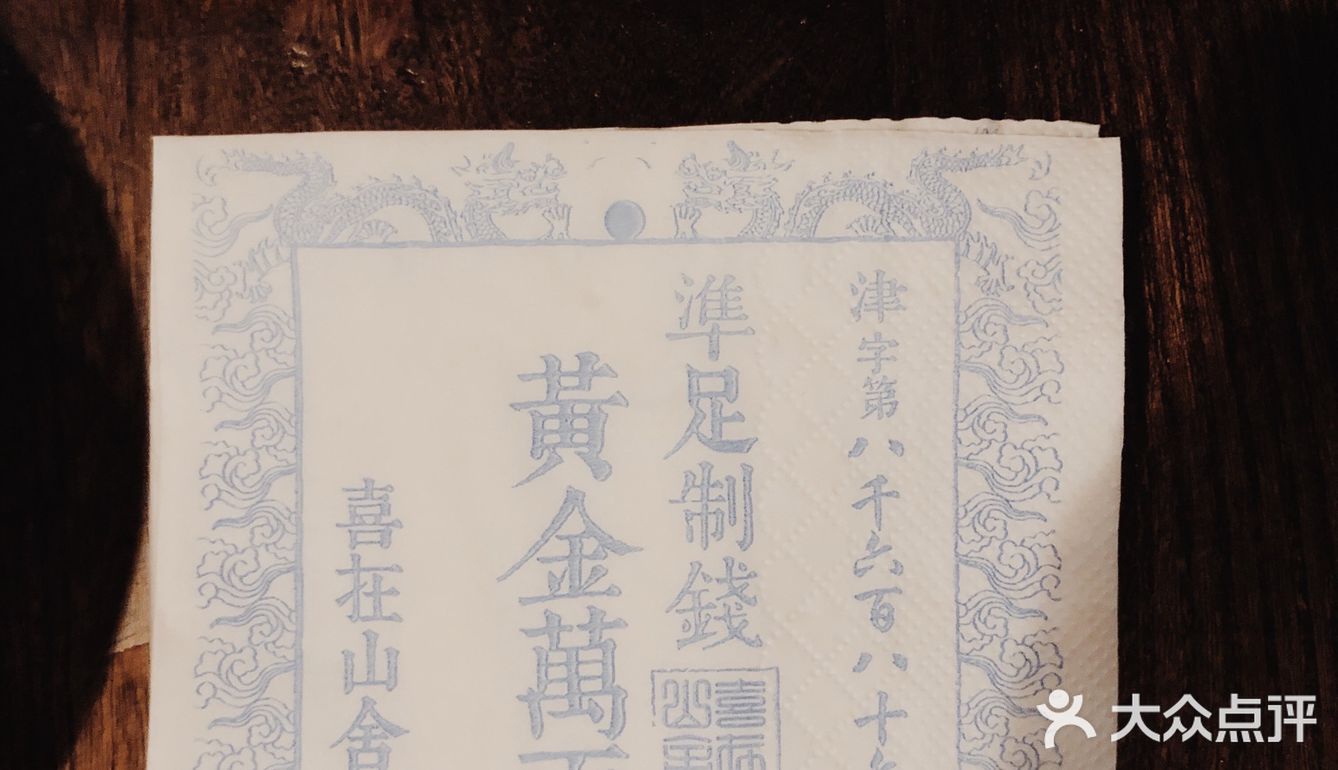 津字第八千六百八十
準足制錢
黃金萬
喜在山舍
大众点评